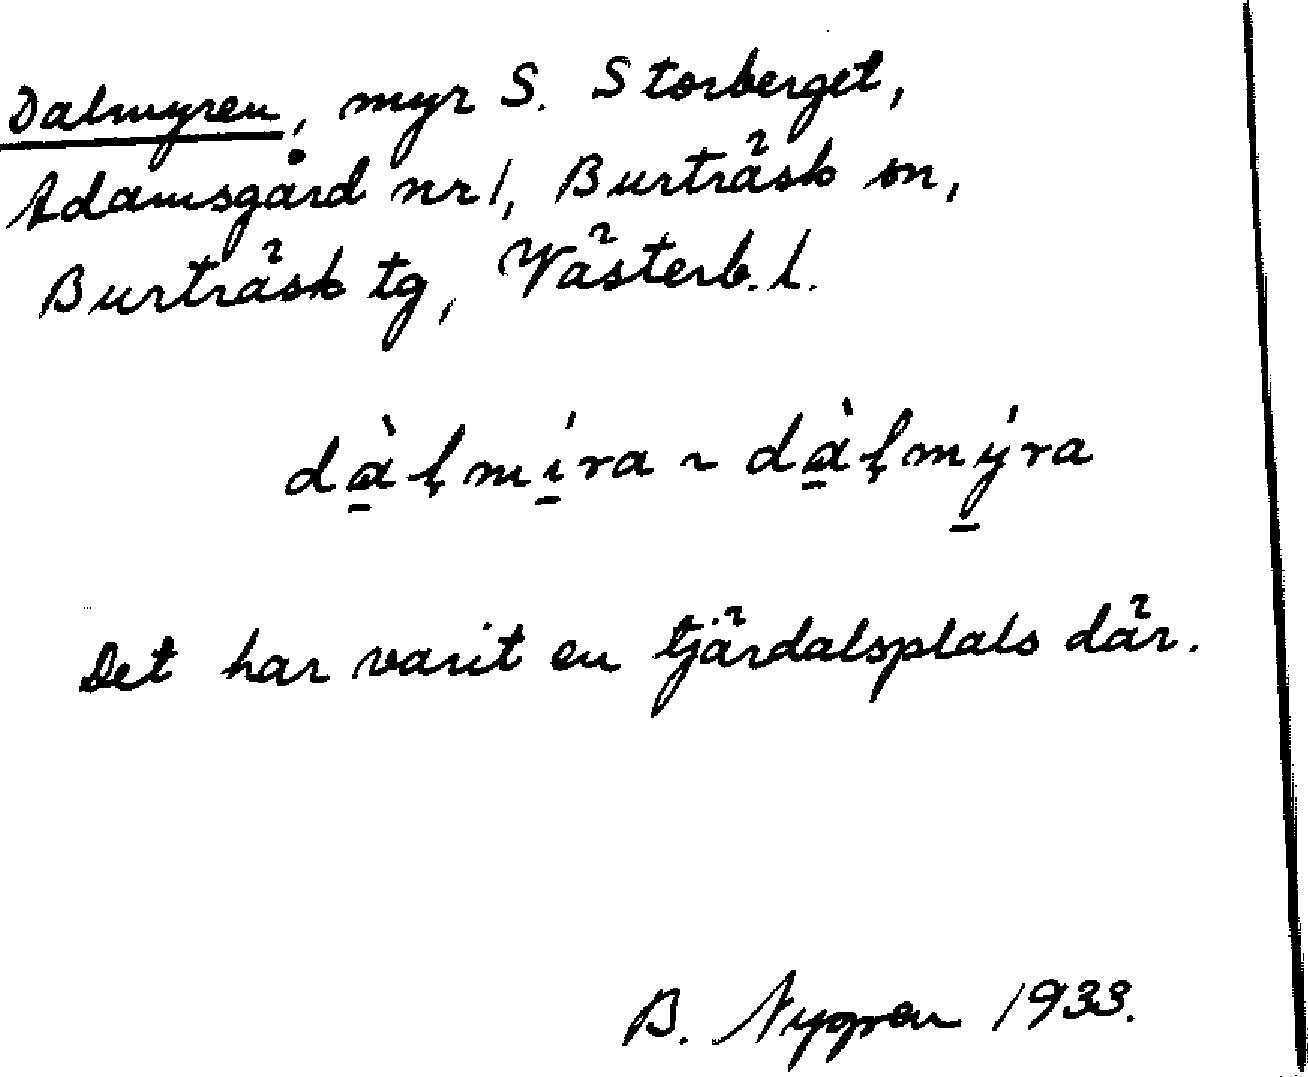 Dalmyren, myr S. Storberget,
Adamsgård nr 1, Burträsk sn,
Burträsk tg, Västerb. l.
dà̱ḷmí̱ra ~ dà̱ḷmý̱ra
Det har varit en tjärdalsplats där.
B. Nygren 1933.